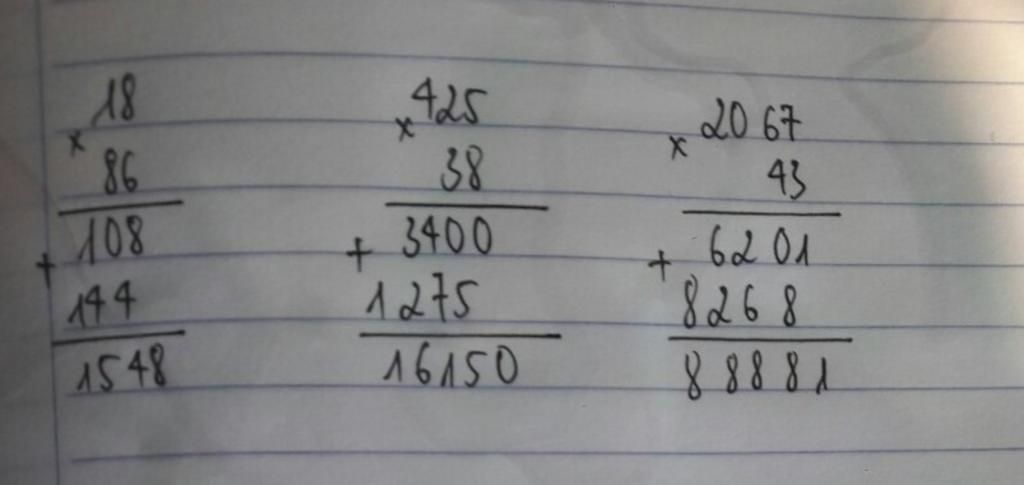 18
x
86
108
+
144
1548
425
x
38
3400
+
1275
16150
2067
x
43
6201
+
8268
88881